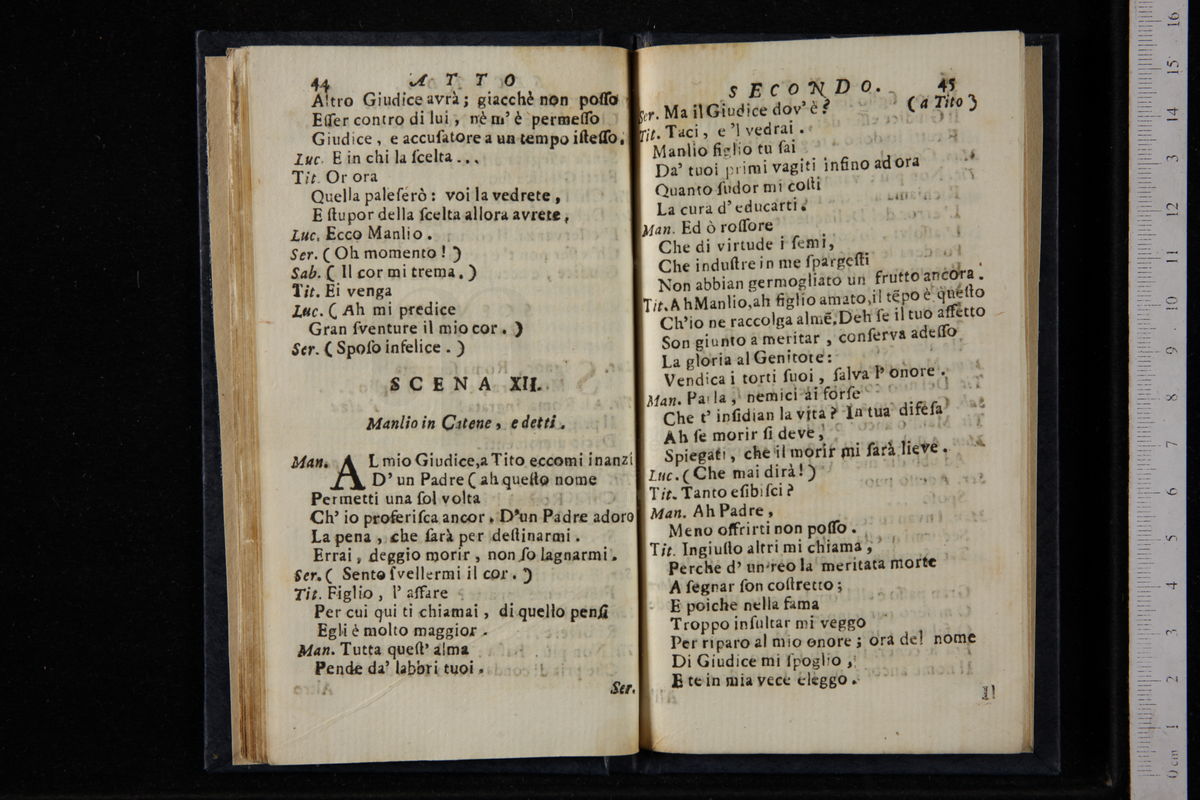 44 ATTO
Altro Giudice avrà; giacchè non poſſo
Eſſer contro di lui, nè m' è permeſſo
Giudice, e accuſatore a un tempo iſteſſo.
Luc. E in chi la ſcelta...
Tit. Or ora
Quella paleſerò: voi la vedrete,
E ſtupor della ſcelta allora avrete,
Luc. Ecco Manlio.
Ser. (Oh momento!)
Sab. (Il cor mi trema.)
Tit. Ei venga
Luc. (Ah mi predice
Gran ſventure il mio cor.)
Ser. (Spoſo infelice.)
SCENA XII.
Manlio in Catene, e detti.
Man. AL mio Giudice, a Tito eccomi inanzi
D' un Padre (ah queſto nome
Permetti una ſol volta
Ch' io proferiſca ancor. D'un Padre adoro
La pena, che ſarà per deſtinarmi.
Errai, deggio morir, non ſo lagnarmi.
Ser. (Sento ſvellermi il cor.)
Tit. Figlio, l' affare
Per cui qui ti chiamai, di quello penſi
Egli è molto maggior.
Man. Tutta queſt' alma
Pende da' labbri tuoi.
Ser.
SECONDO. 45
Ser. Ma il Giudice dov' è? (a Tito)
Tit. Taci, e 'l vedrai.
Manlio figlio tu ſai
Da' tuoi primi vagiti infino ad ora
Quanto ſudor mi coſti
La cura d' educarti.
Man. Ed ò roſſore
Che di virtude i ſemi,
Che induſtre in me ſpargeſti
Non abbian germogliato un frutto ancora.
Tit. Ah Manlio, ah figlio amato, il tēpo è queſto
Ch'io ne raccolga almē. Deh ſe il tuo affetto
Son giunto a meritar, conſerva adeſſo
La gloria al Genitote:
Vendica i torti ſuoi, ſalva l' onore.
Man. Parla, nemici ai forſe
Che t' inſidian la vita? In tua difeſa
Ah ſe morir ſi deve,
Spiegati, che il morir mi ſarà lieve.
Luc. (Che mai dirà!)
Tit. Tanto eſibiſci?
Man. Ah Padre,
Meno offrirti non poſſo.
Tit. Ingiuſto altri mi chiama,
Perche d' un reo la meritata morte
A ſegnar ſon coſtretto;
E poiche nella fama
Troppo inſultar mi veggo
Per riparo al mio onore; ora del nome
Di Giudice mi ſpoglio,
E te in mia vece eleggo.
Il
0 cm 1 2 3 4 5 6 7 8 9 10 11 12 13 14 15 16